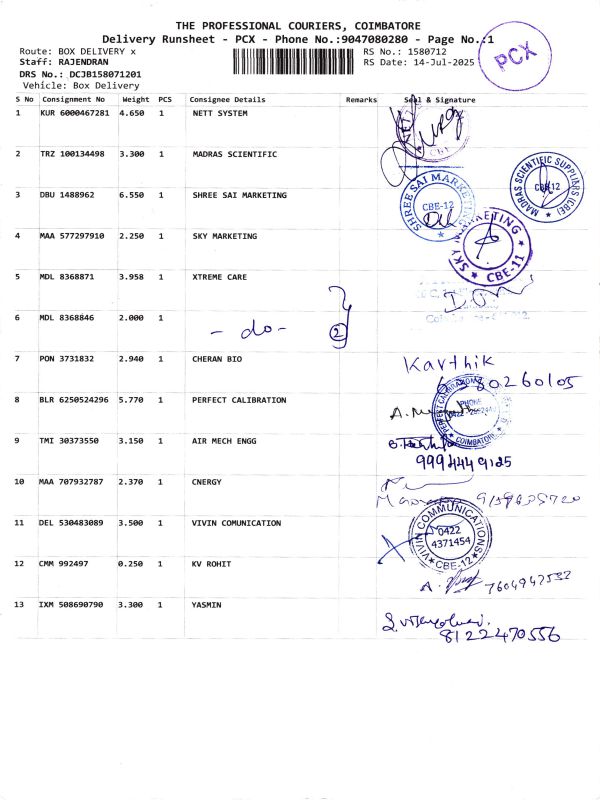 THE PROFESSIONAL COURIERS, COIMBATORE
Delivery Runsheet - PCX - Phone No.:9047080280 - Page No.:1
Route: BOX DELIVERY x RS No.: 1580712
Staff: RAJENDRAN RS Date: 14-Jul-2025
DRS No.: DCJB158071201
Vehicle: Box Delivery
PCX
S No Consignment No Weight PCS Consignee Details Remarks Seal & Signature
1 KUR 6000467281 4.650 1 NETT SYSTEM
NETT
CBE
2 TRZ 100134498 3.300 1 MADRAS SCIENTIFIC
MADRAS SCIENTIFIC SUPPLIERS (CBE)
CBE-12
3 DBU 1488962 6.550 1 SHREE SAI MARKETING
SHREE SAI MARKETING
CBE-12
4 MAA 577297910 2.250 1 SKY MARKETING
SKY MARKETING
CBE-11
5 MDL 8368871 3.958 1 XTREME CARE
6 MDL 8368846 2.000 1 - do - 2
7 PON 3731832 2.940 1 CHERAN BIO Karthik
6380260105
8 BLR 6250524296 5.770 1 PERFECT CALIBRATION
PERFECT CALIBRATION
PHONE
COIMBATORE
9 TMI 30373550 3.150 1 AIR MECH ENGG
9994449125
10 MAA 707932787 2.370 1 CNERGY
11 DEL 530483089 3.500 1 VIVIN COMUNICATION
VIVIN COMMUNICATIONS
0422
4371454
CBE-12
12 CMM 992497 0.250 1 KV ROHIT
A. 7604947532
13 IXM 508690790 3.300 1 YASMIN
8122470556